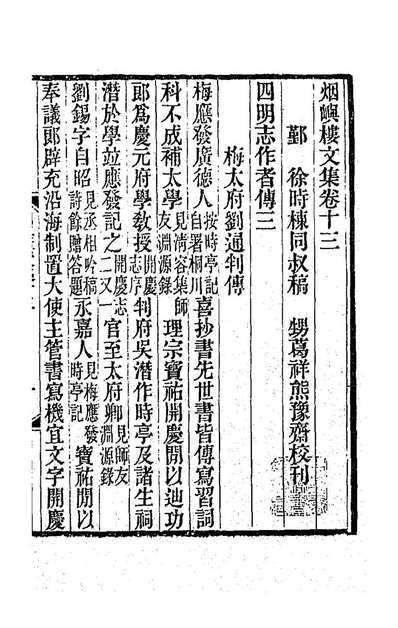 烟嶼樓文集卷十三
鄞　徐時棟同叔稿　甥葛祥熊豫齋校刊
四明志作者傳三
梅太府劉通判傳
梅應發廣德人按時亭記自署桐川喜抄書先世書皆傳寫習詞
科不成補太學見清容集師友淵源錄理宗寶祐開慶間以迪功
郎爲慶元府學敎授開慶志序判府吳潛作時亭及諸生祠
潛於學竝應發記之開慶志二又一官至太府卿見師友淵源錄
劉錫字自昭見丞相吟稿詩餘贈答題永嘉人見梅應發時亭記寶祐間以
奉議郎辟充沿海制置大使主管書寫機宜文字開慶